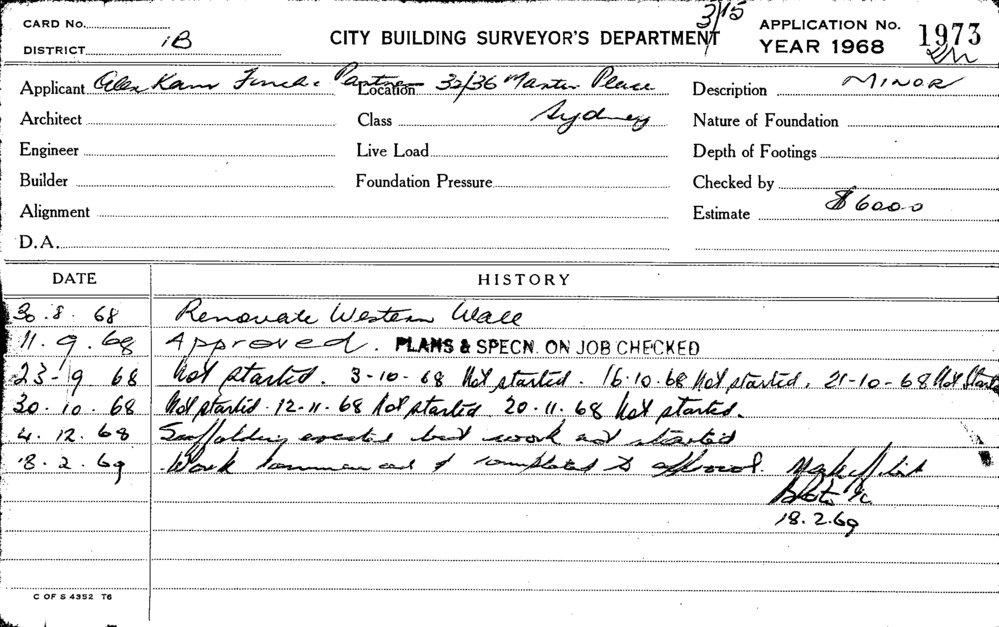 3/15
CARD No.
DISTRICT 1B
CITY BUILDING SURVEYOR'S DEPARTMENT
APPLICATION No. 1973
YEAR 1968
Applicant Alex Kann Finch & Partners Location 32/36 Martin Place Description MINOR
Architect Class Sydney Nature of Foundation
Engineer Live Load Depth of Footings
Builder Foundation Pressure Checked by
Alignment Estimate $6000
D.A.
DATE HISTORY
30.8.68 Renovate Western Wall
11.9.68 Approved. PLANS & SPECN. ON JOB CHECKED
23-9 68 Not started. 3-10-68 Not started. 16.10.68 Not started. 21-10-68 Not Start
30.10.68 Not started. 12-11-68 Not started 20.11.68 Not started.
4.12.68 Scaffolding erected but work not started
18.2.69 Work commenced & completed to approval. Mark off list
18.2.69
C OF S 4352 T6